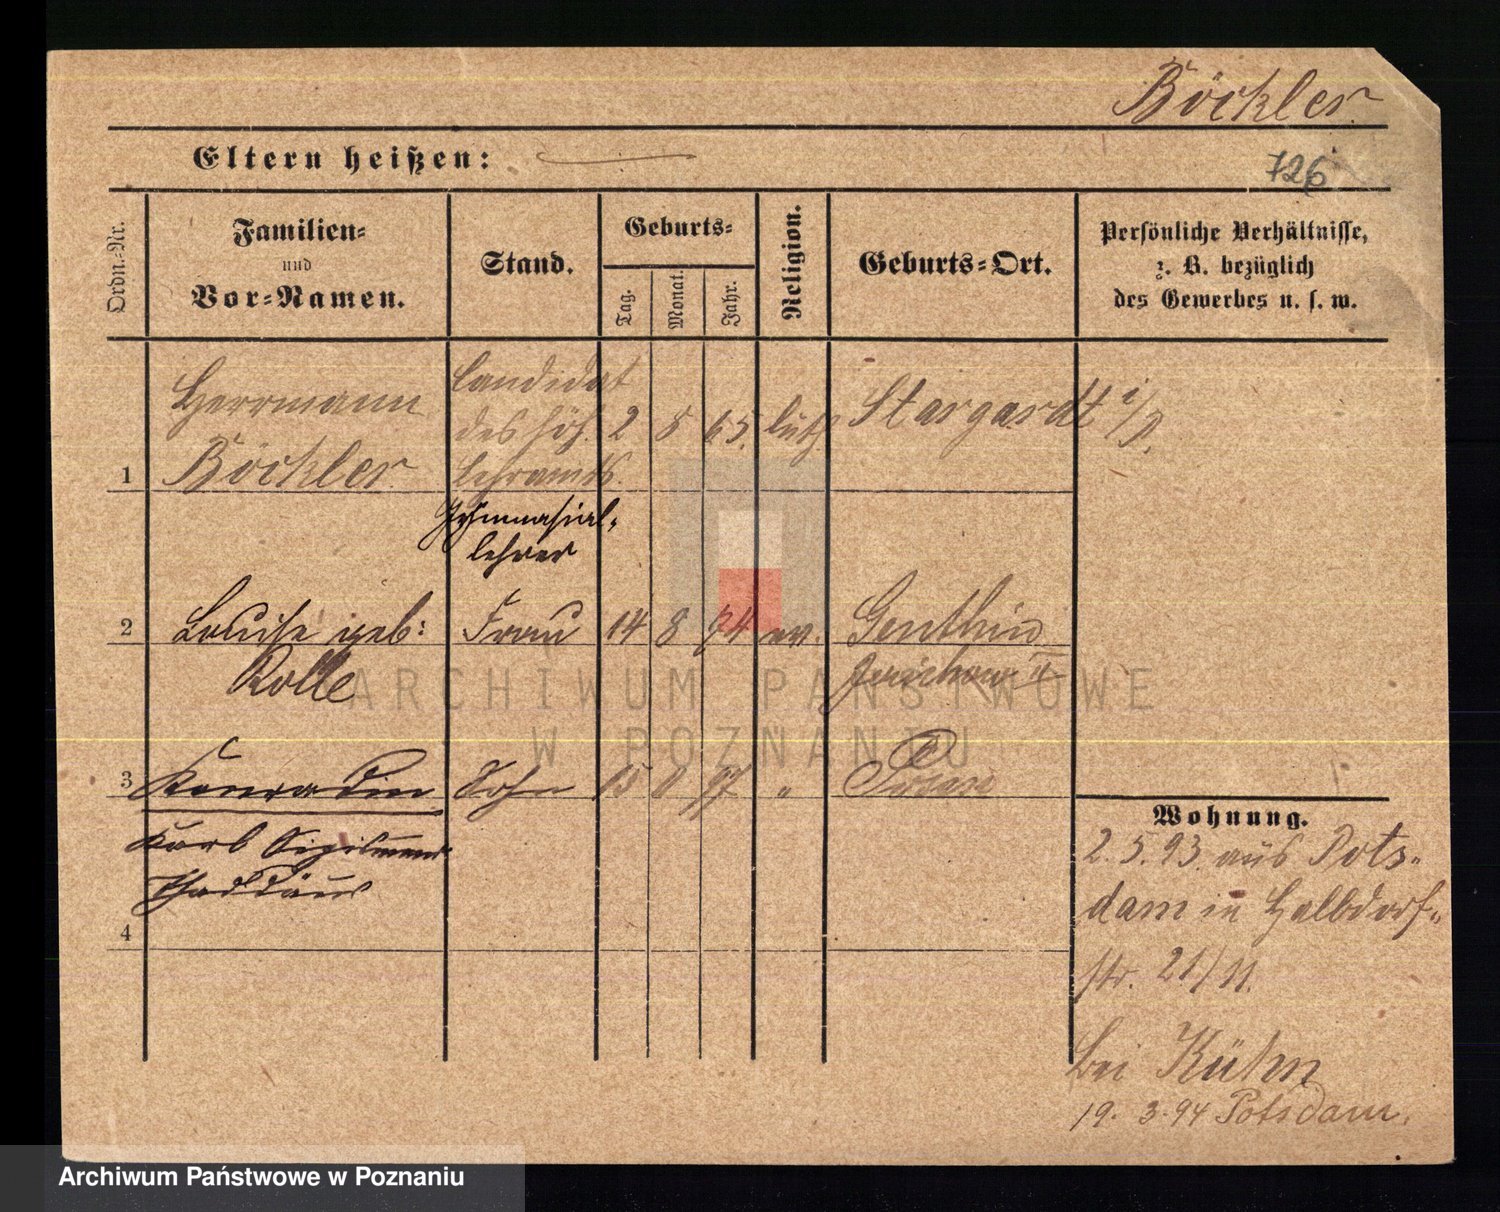 Böckler
Eltern heißen:
726
Ordn.-Nr.
Familien-
und
Vor-Namen.
Stand.
Geburts-
Tag.
Monat.
Jahr.
Religion.
Geburts-Ort.
Persönliche Verhältnisse,
z. B. bezüglich
des Gewerbes u. s. w.
1
Herrmann
Böckler
Candidat
des höh.
Lehramts.
2 5 65. luth. Stargardt i/P.
Gymnasial-
lehrer
2
Louise geb:
Rolle
Frau
14 8 74 ev. Genthin
Jerichow II
3
Konrad
Karl Sigismund
Thaddäus
Sohn
15 97 " Posen
4
Wohnung.
2.5.93. aus Pots-
dam in Halbdorf-
str. 21/II.
bei Kühn
19. 3.94 Potsdam.
ARCHIWUM PAŃSTWOWE
W POZNANIU
Archiwum Państwowe w Poznaniu